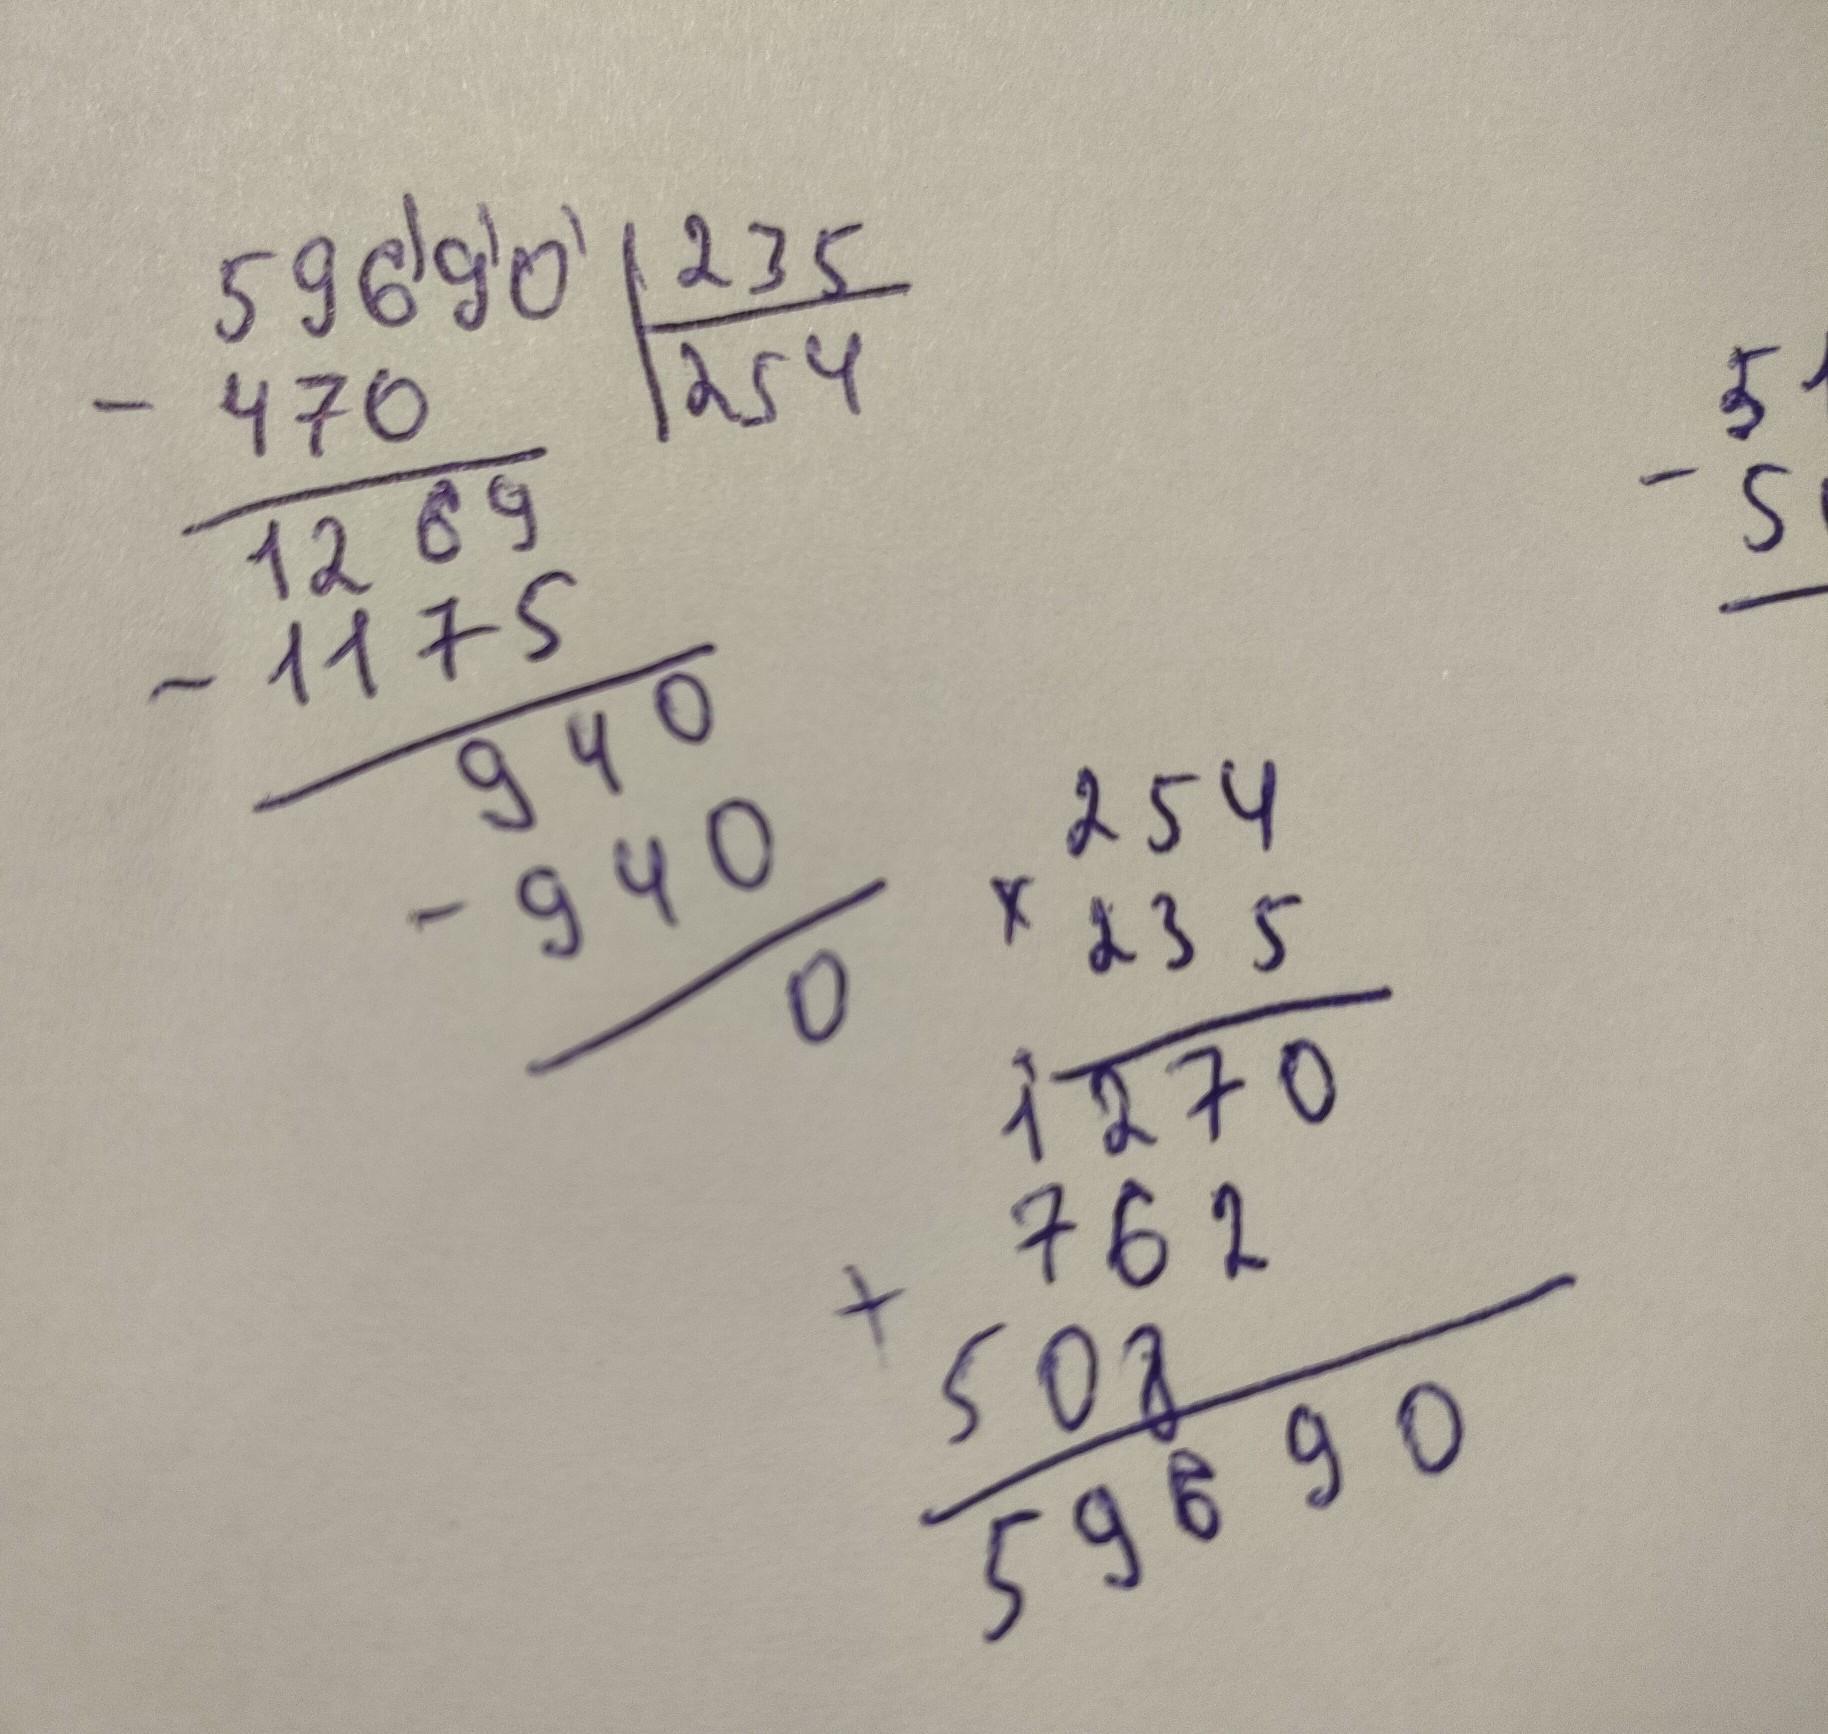 59690 | 235
- 470 | 254
1269
- 1175
940
- 940
0
254
x 235
1270
762
+ 508
59690
5
- 5